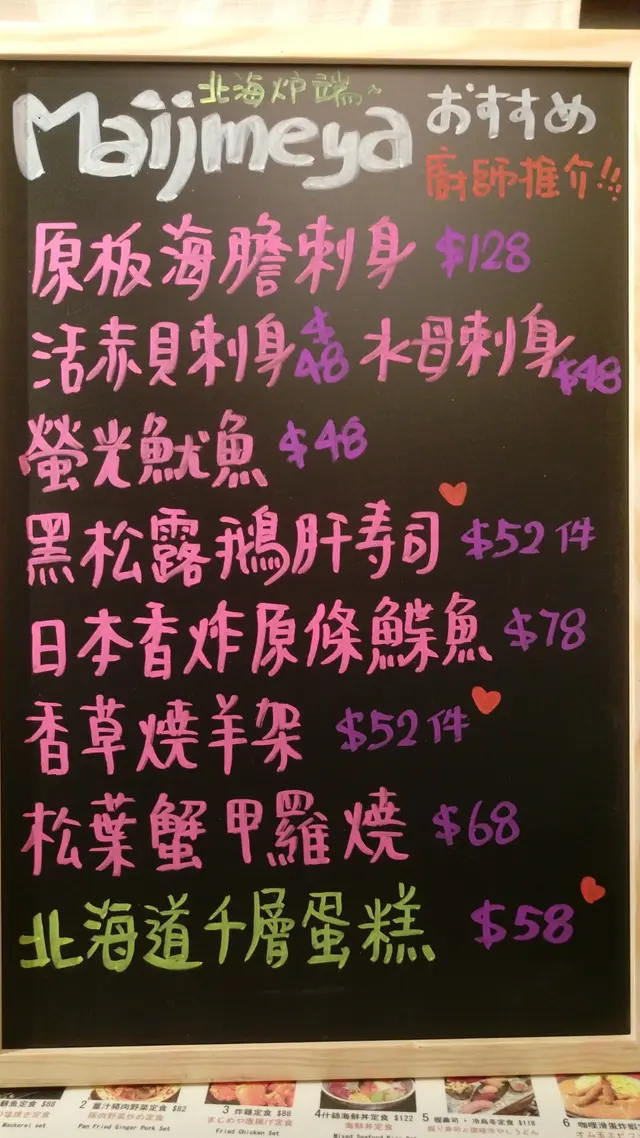 北海炉端
Maijmeya
おすすめ
廚師推介!!
原板海膽刺身 $128
活赤貝刺身 $48 水母刺身 $48
螢光魷魚 $48
黑松露鵝肝寿司 $52件
日本香炸原條鰈魚 $78
香草燒羊架 $52件
松葉蟹甲羅燒 $68
北海道千層蛋糕 $58
2 薑汁豬肉野菜定食 $82
豚肉野菜炒め定食
Pan Fried Ginger Pork Set
3 炸雞定食 $88
まじめや唐揚げ定食
Fried Chicken Set
4 什錦海鮮丼定食 $122
海鮮丼定食
5 握壽司・冷烏冬定食 $118
6 咖哩滑蛋炸蝦